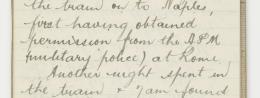 the train on to Naples,
first having obtained
permission from the A.P.M
(military police) at Rome.
Another night spent in
the train & 7am found